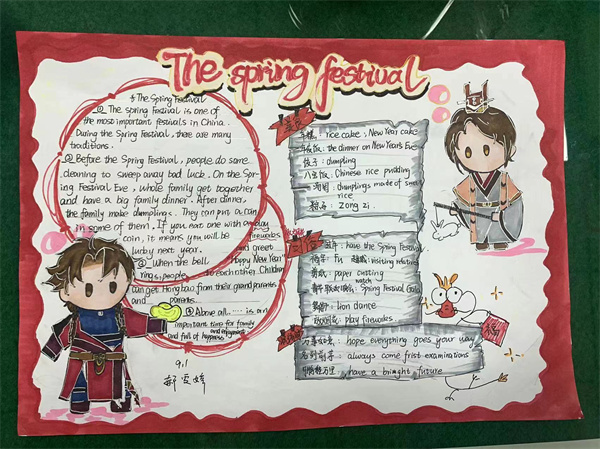 The spring festival
☆The Spring Festival
① The spring Festival is one of
the most important festivals in China.
During the Spring Festival, there are many
traditions.
② Before the Spring Festival, people do some
cleaning to sweep away bad luck. On the Spr-
ing Festival Eve, whole family get together
and have a big family dinner. After dinner,
the family make dumplings. They can put a coin
in some of them. If you
coin, it means you will be
lucky next year.
fireworks
and greet
③ When the bell
Happy New Year
rings, people to eachother. Children
can get Hong bao from their grand parents
and parents.
④ Above all, is an
important time for family
and full of happyness
and enjoyment
9.1
美食
年糕: rice cake, New Year cake
年夜饭: the dinner on New Year's Eve
饺子: dumpling
八宝饭: Chinese rice pudding
汤圆: dumplings made of sweet
rice
粽子: Zong zi.
习俗
过年: have the Spring Festival
福字: Fu visiting relatives
剪纸: paper cutting
watch
Spring Festival Gala
舞狮: lion dance
放烟花: play fireworks
万事如意: hope everything goes your way
名列前茅: always come frist examinations
鹏程万里: have a bright future
福